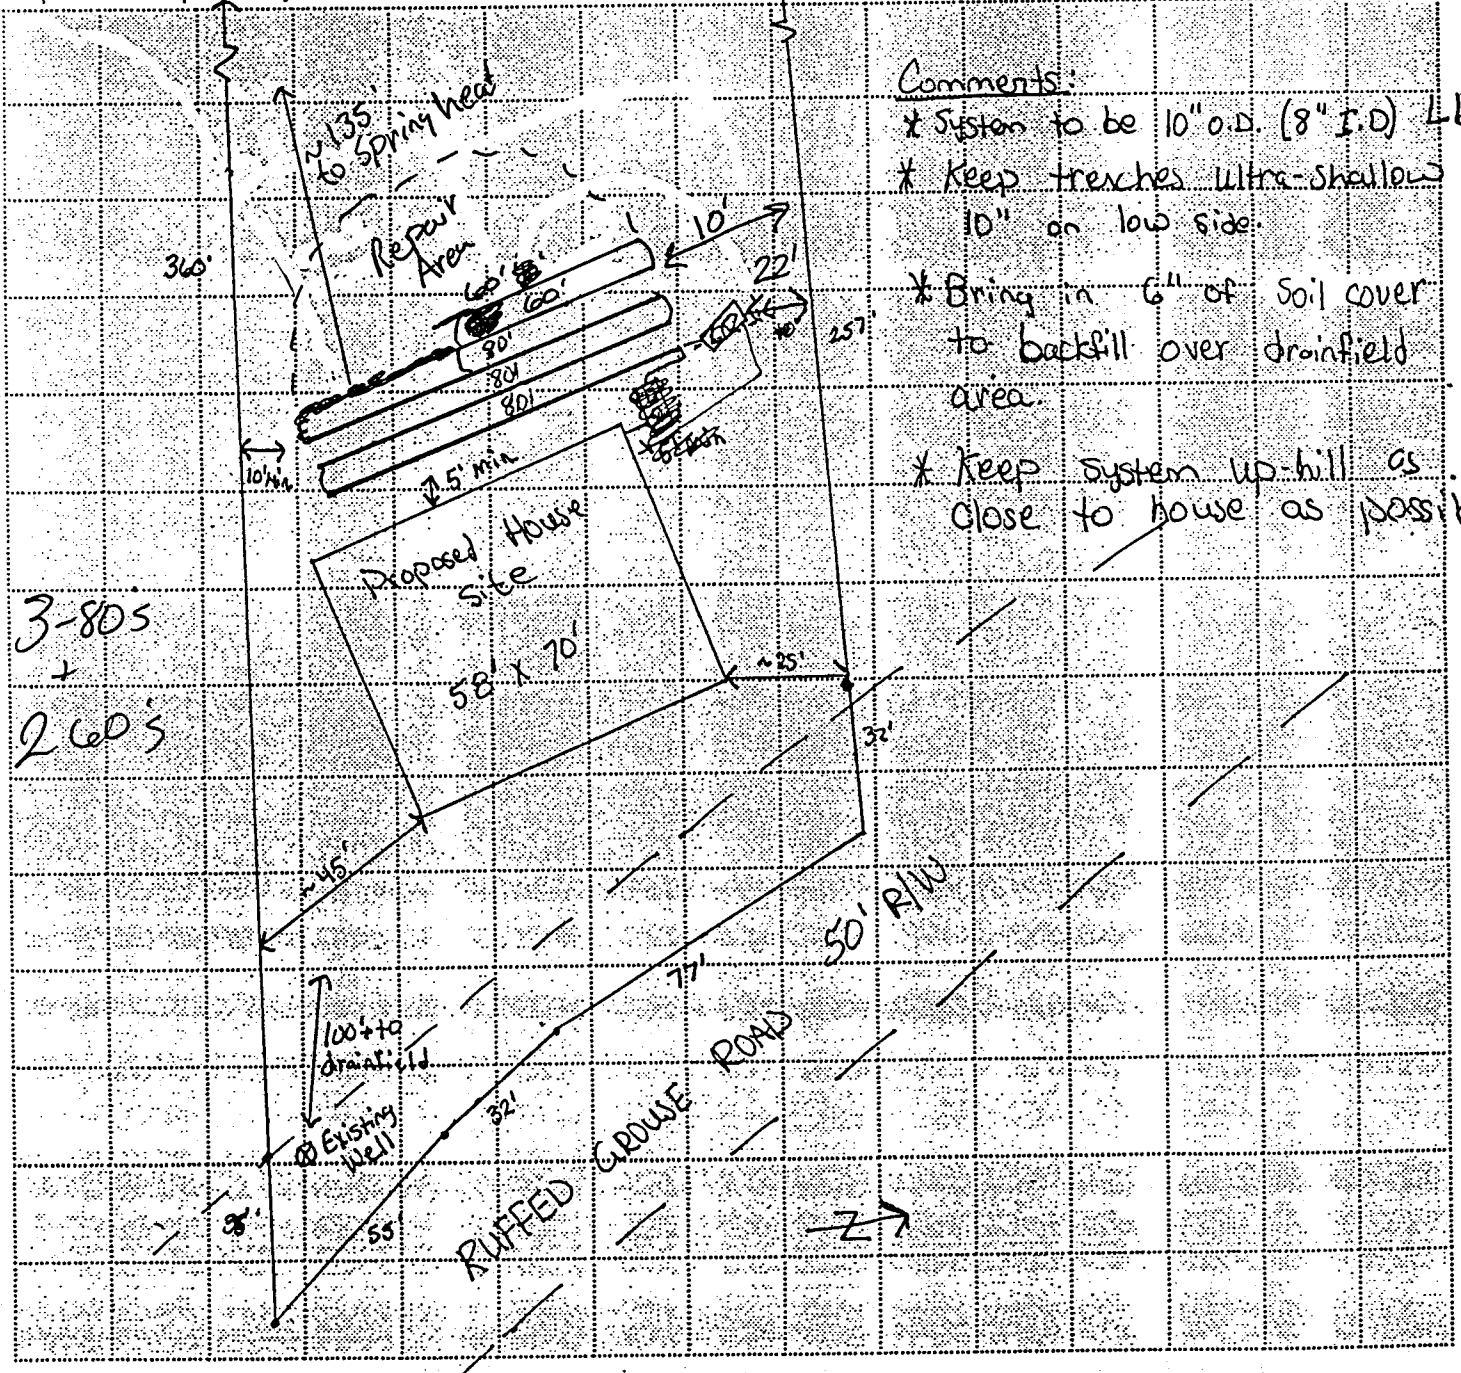 Comments:
* System to be 10" O.D. (8" I.D)
* Keep trenches ultra-shallow
10" on low side.
* Bring in 6" of soil cover
to backfill over drainfield
area.
* Keep system up-hill as
close to house as
~135'
to Spring head
Repair
Area
10'
22'
360'
257'
60'
60'
80'
80'
80'
10' Min
5' min
Proposed House
Site
58' x 70'
3-80s
+
2 60's
~25'
32'
~45'
77'
50' R/W
100'+ to
drainfield
Existing
Well
32'
55'
RUFFED GROUSE ROAD
Z